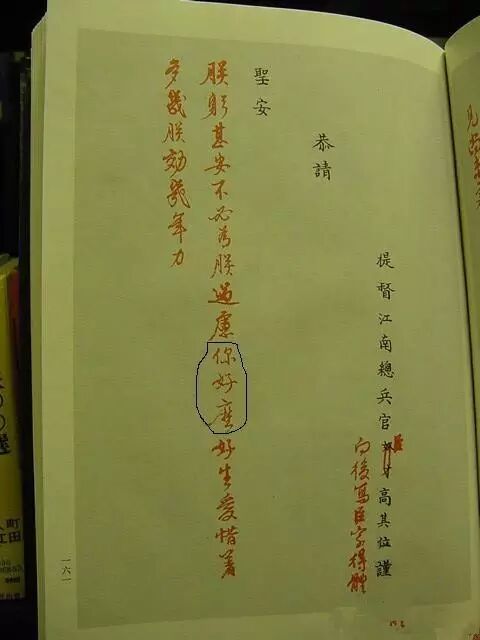 提督江南總兵官奴才高其位謹
臣
向後寫臣字得體
恭請
聖安
朕躬甚安不必為朕過慮你好麼好生愛惜著
多為朕効幾年力
一六一
の選
町
田